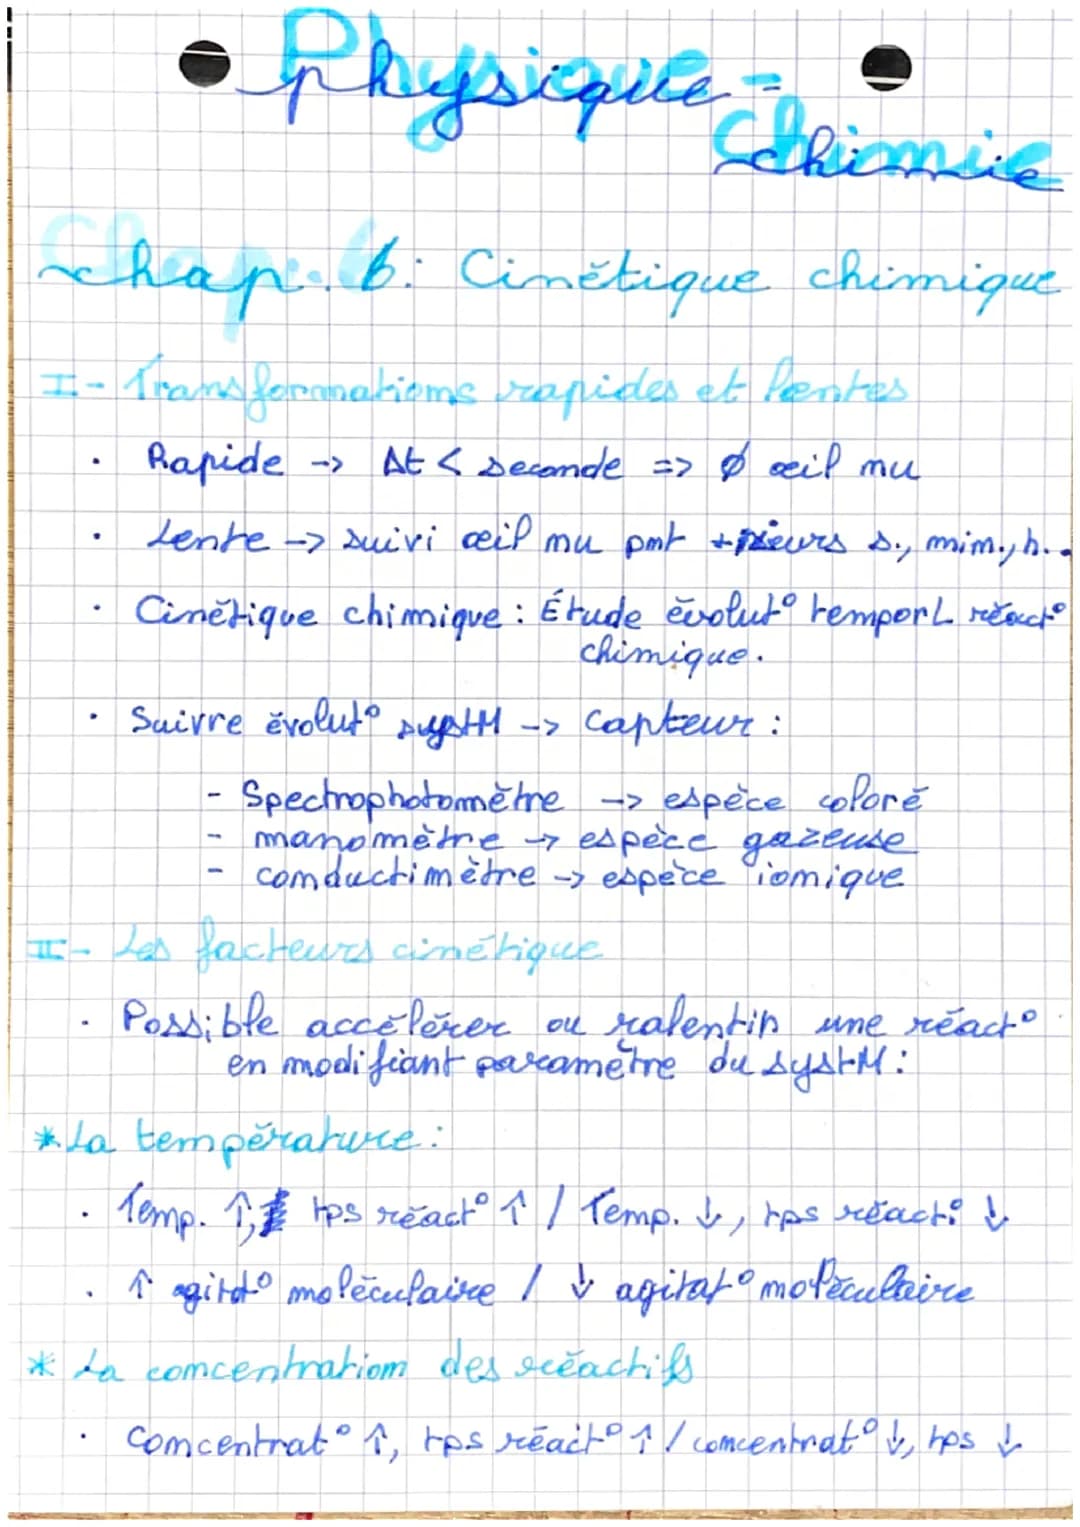 Physique -
Chimie
Chap. 6: Cinétique chimique
I - Transformations rapides et lentes
. Rapide -> Δt < seconde => Ø œil nu
. Lente -> suivi œil nu pnt +sieurs s., min., h...
. Cinétique chimique : Étude évolut° temporL réact°
chimique.
. Suivre évolut° systM -> Capteur :
- Spectrophotomètre -> espèce coloré
- manomètre -> espèce gazeuse
- conductimètre -> espèce ionique
II - Les facteurs cinétique
. Possible accélérer ou ralentir une réact°
en modifiant paramètre du systM :
* La température :
. Temp. ↑, tps réact° ↑ / Temp. ↓, tps réact° ↓
. ↑ agitat° moléculaire / ↓ agitat° moléculaire
* La concentration des réactifs
. Concentrat° ↑, tps réact° ↑ / concentrat° ↓, tps ↓